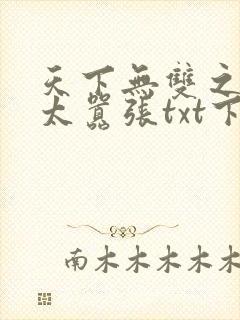 天下無雙之
太囂張txt下
南木木木木木